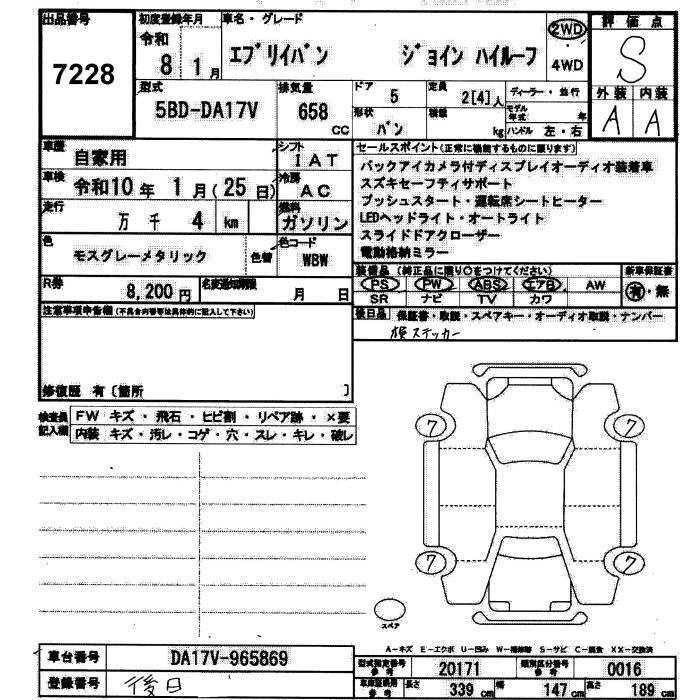 出品番号
7228
初度登録年月
令和
8 1月
車名・グレード
エブリイバン ジョイン ハイルーフ
2WD
4WD
評価点
S
外装 内装
A A
型式
5BD-DA17V
排気量
658 CC
ドア
5
形状
バン
定員
2[4]人
積載
kg
ディーラー・並行
モデル年式 年
ハンドル 左・右
車歴
自家用
車検
令和10年 1月(25日)
走行
万 千 4 km
色
モスグレーメタリック
色替
シフト
IAT
冷房
AC
燃料
ガソリン
色コード
WBW
R券
8,200円
名変通知期限
月 日
セールスポイント(正常に機能するものに限ります)
バックアイカメラ付ディスプレイオーディオ装着車
スズキセーフティサポート
プッシュスタート・運転席シートヒーター
LEDヘッドライト・オートライト
スライドドアクローザー
電動格納ミラー
装備品(純正品に限り○をつけてください)
PS PW ABS エアB AW
SR ナビ TV カワ
新車保証書
有・無
後日品 保証書・取説・スペアキー・オーディオ取説・ナンバー
横ステッカー
注意事項申告欄(不具合内容等は具体的に記入して下さい)
修復歴 有〔箇所 〕
検査員記入欄
FW キズ・飛石・ヒビ割・リペア跡・×要
内装 キズ・汚レ・コゲ・穴・スレ・キレ・破レ
7 7
7 7
スペア
A-キズ E-エクボ U-凹み W-補修跡 S-サビ C-腐食 XX-交換済
車台番号
DA17V-965869
登録番号
後日
型式指定番号 参考
20171
類別区分番号 参考
0016
車庫証明用 参考
長さ 339 cm 幅 147 cm 高さ 189 cm